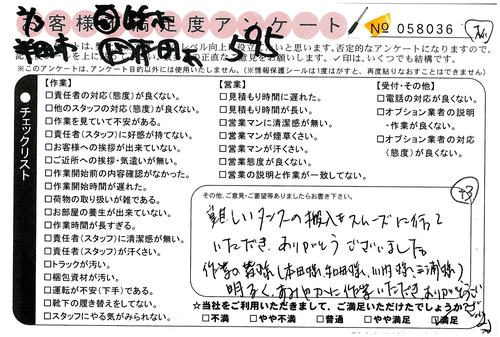 お客様満足度アンケート
No 058036
595
レベル向上に役立てたいと思います。否定的なアンケートにもなりますので、
正直なご意見をお願いします。✓印は、いくつでも結構です。
※このアンケートは、アンケート目的以外には使用いたしません。(※情報保護シールは1度はがすと、再度貼りなおすことはできません)
●チェックリスト
【作業】
□責任者の対応(態度)が良くない。
□他のスタッフの対応(態度)が良くない。
□作業を見ていて不安がある。
□責任者(スタッフ)に好感が持てない。
□お客様への挨拶が出来ていない。
□ご近所への挨拶・気遣いが無い。
□作業開始前の内容確認がなかった。
□作業開始時間が遅れた。
□荷物の取り扱いが雑である。
□お部屋の養生が出来ていない。
□作業時間が長すぎる。
□責任者(スタッフ)に清潔感が無い。
□責任者(スタッフ)が汗くさい。
□トラックが汚い。
□梱包資材が汚い。
□運転が不安(下手)である。
□靴下の履き替えをしてない。
□スタッフにやる気がみられない。
【営業】
□見積もり時間に遅れた。
□見積もり時間が長い。
□営業マンに清潔感が無い。
□営業マンが煙草くさい。
□営業マンが汗くさい。
□営業態度が良くない。
□営業の説明と作業が一致してない。
【受付・その他】
□電話の対応が良くない。
□オプション業者の説明
・作業が良くない。
□オプション業者の対応
(態度)が良くない。
その他、ご意見・ご要望等ありましたらお書き下さい。
難しいタンスの搬入をスムーズに行って
いただき、ありがとうございました。
作業の皆様(本田様、和田様、川内様、三浦様)
明るく、おだやかに作業いただき、ありがとうござい
★当社をご利用いただきまして、ご満足いただけたでしょうか?
□不満 □やや不満 □普通 □やや満足 ☑満足